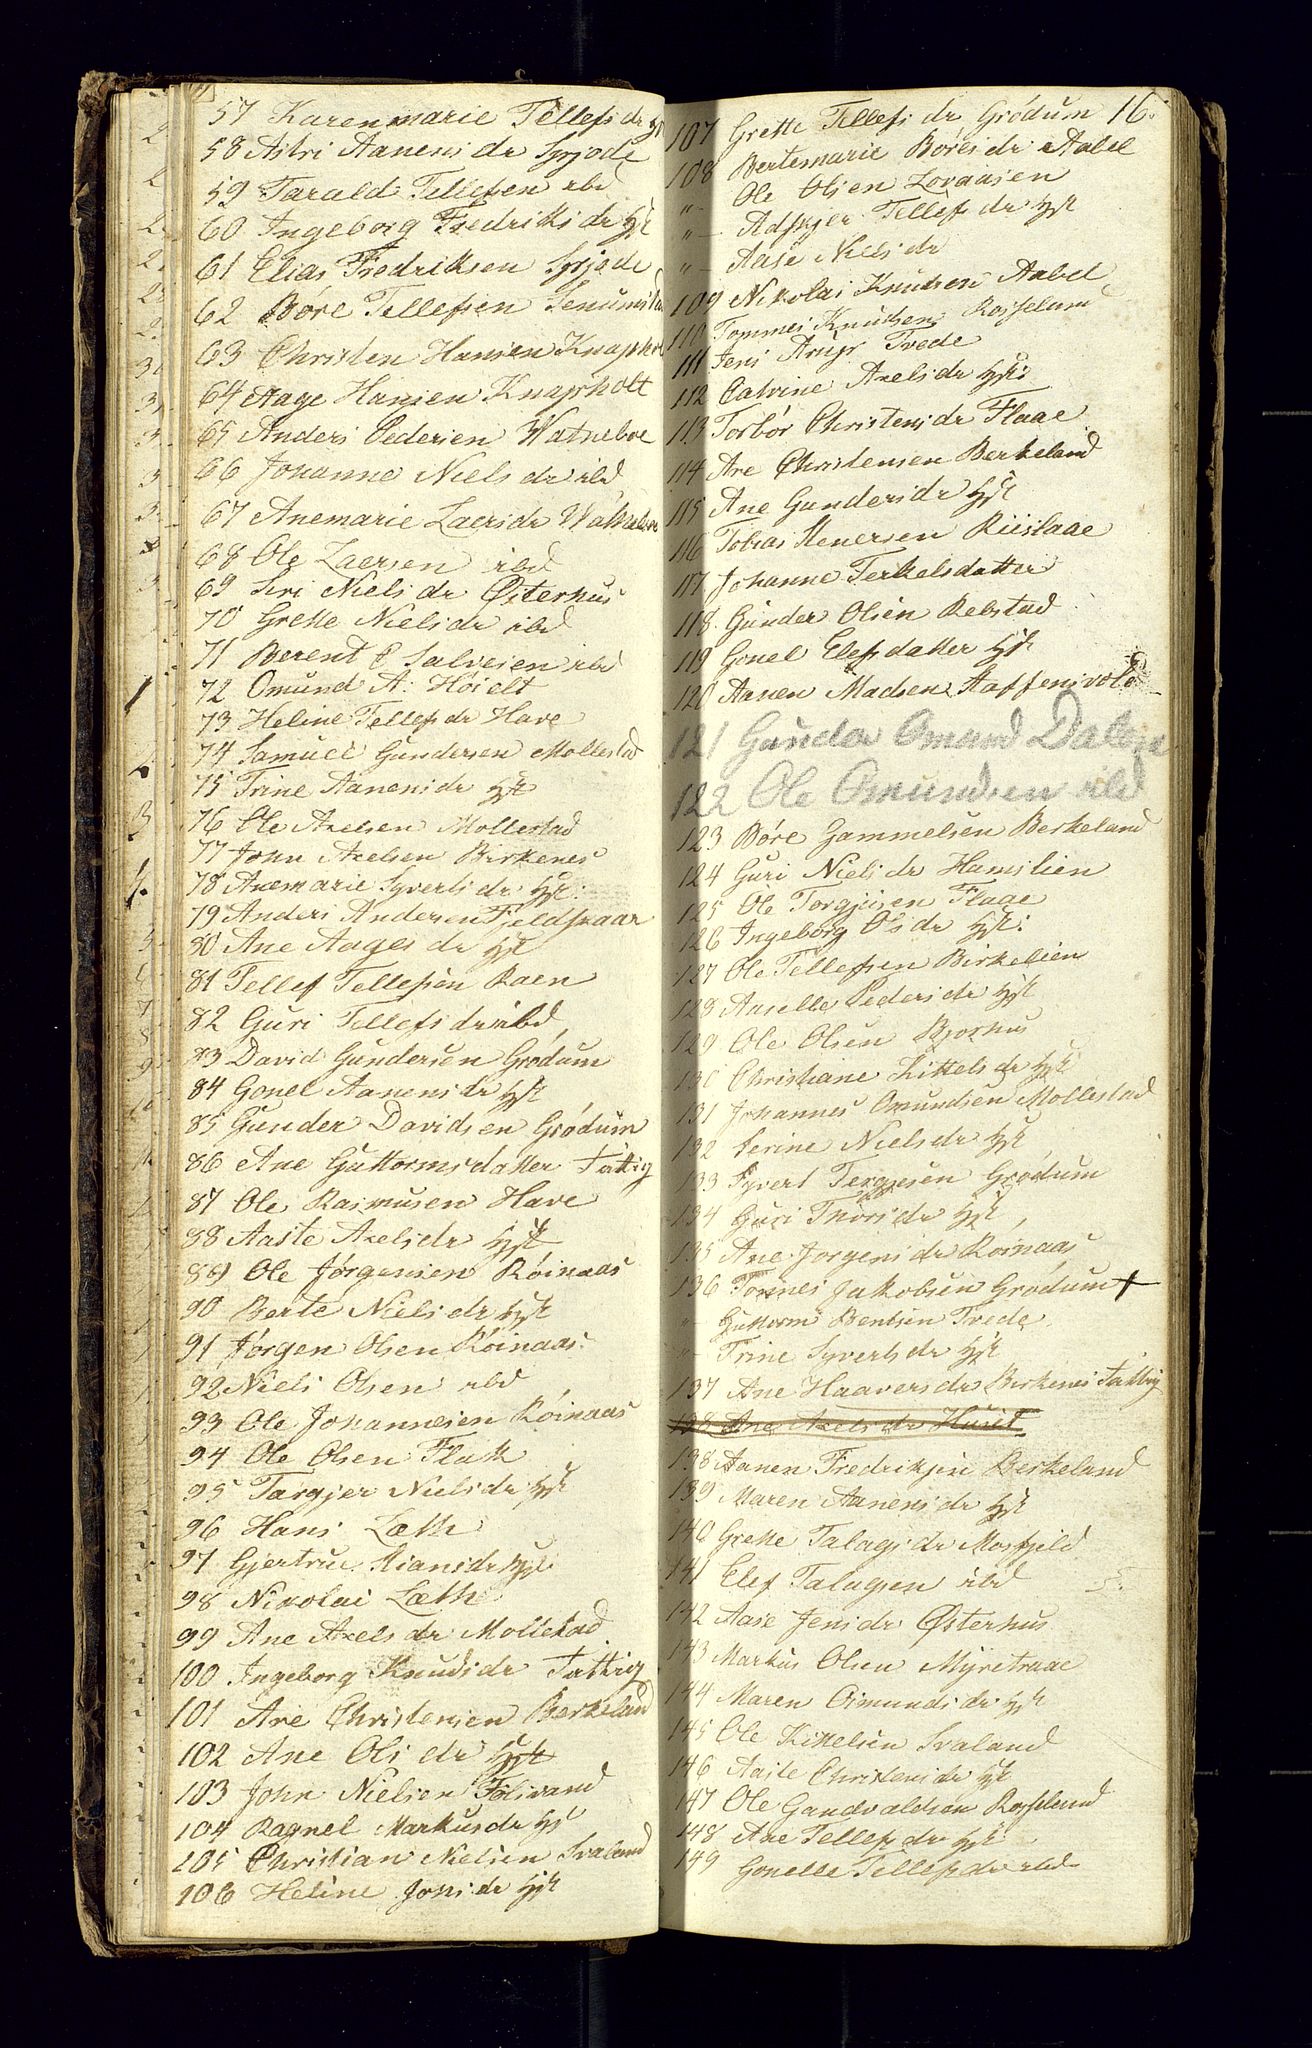 57 Karenmarie Tellefsdr
58 Astri Aanensdr
59 Tarald Tellefsen ibd
60 Ingeborg Fredriksdr hst
61 Elias Fredriksen
62 Børe Tellefsen Senumstad
63 Christen Hansen Knapholt
64 Aage Hansen Knapholt
65 Anders Pedersen Watneboe
66 Johanne Nielsdr ibd
67 Anemarie Laersdr
68 Ole Laersen ibd
69 Siri Nielsdr Østerhus
70 Grethe Nielsdr ibd
71 Berent E Salvesen ibd
72 Omund A: Høielt
73 Heline Tellefsdr Have
74 Samuel Gundersen Mollestad
75 Trine Aanensdr hst
76 Ole Axelsen Mollestad
77 John Axelsen Birkenes
78 Anemarie Syvertsdr hst:
79 Anders Andersen Fjeldskaar
80 Ane Aagesdr hst
81 Tellef Tellefsen Raen
82 Guri Tellefsdr ibd
83 David Gundersen Grødum
84 Gonel Aanensdr hst
85 Gunder Davidsen Grødum
86 Ane Guttormsdatter Fattig
87 Ole Rasmusen Have
88 Aaste Axelsdr hst
89 Ole Jørgensen Røinaas
90 Berte Nielsdr hst
91 Jørgen Olsen Røinaas
92 Niels Olsen ibd
93 Ole Johannesen Røinaas
94 Ole Olsen Flak
95 Targjer Nielsdr hst
96 Hans Læth
97 Gjertrue hst
98 Nikolai Læth
99 Ane Axelsdr Mollestad
100 Ingeborg Knudsdr Fattig
101 Are Christensen Berkeland
102 Ane Olsdr hst
103 John Nielsen
104 Ragnel Markusdr
105 Christian Nielsen Svaland
106 Heline Jonsdr hst
16.
107 Grethe Tellefsdr Grødum
108 Bertemarie Børesdr Aabel
"- Ole Olsen Lovaasen
"- Tellefsdr hst
"- Aase Nielsdr
109 Nikolai Knudsen Aabel
110 Tommes Knudsen Rosseland
111 Jens Tvede
112 Catrine Axelsdr hst:
113 Torbør Christensdr Flaae
114 Are Christensen Berkeland
115 Ane Gundersdr hst
116 Tobias Stenersen Riislaae
117 Johanne Terkelsdatter
118 Gunder Olsen Rebstad
119 Gonel Elefsdatter hst
120 Aanen Madsen
121 Gunder Omund
122 Ole Omundsen ibd
123 Børe Gammelsen Berkeland
124 Guri Nielsdr Hamslien
125 Ole Torgjusen Flaae
126 Ingeborg Olsdr hst:
127 Ole Tellefsen Birkelien
128 Anselle Pedersdr hst
129 Ole Olsen Bjorhus
130 Christiane Kittelsdr hst
131 Johannes Omundsen Mollestad
132 Serine Nielsdr hst
133 Syvert Terjesen Grødum
134 Guri Thorsdr hst
135 Ane Jorgensdr Roinaas
136 Tomes Jakobsen Grødum +
"- Guttorm Bentsen Tvede
"- Trine Syvertsdr hst
137 Ane Haaversdr Berkenes Fattig
138 Ane Axelsdr
138 Aanen Fredriksen Berkeland
139 Maren Aanensdr hst
140 Grethe Talagsdr Mosfjeld
141 Elef Talagsen ibd
142 Aase Jensdr Østerhus
143 Markus Olsen Myretraae
144 Maren Osmundsdr hst
145 Ole Kittelsen Svaland
146 Aaste Christensdr hst
147 Ole Gundvaldsen Rosseland
148 Ane Tellefsdr hst
149 Gonelle Tellefsdr ibd